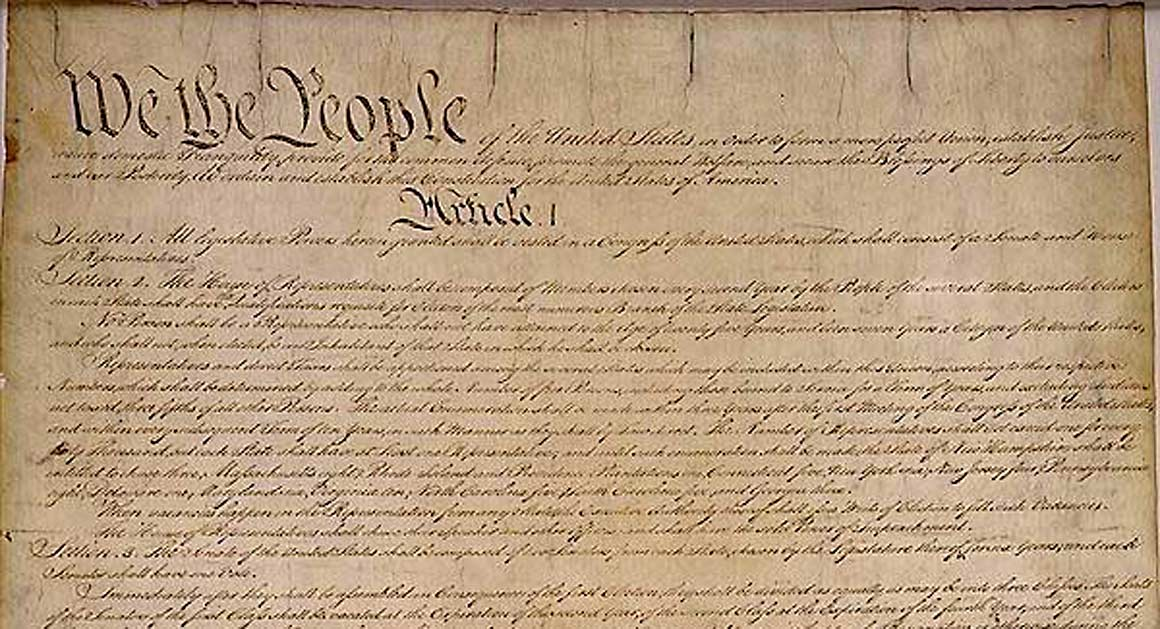 We the People of the United States, in Order to form a more perfect Union, establish Justice,
insure domestic Tranquility, provide for the common defence, promote the general Welfare, and secure the Blessings of Liberty to ourselves
and our Posterity, do ordain and establish this Constitution for the United States of America.
Article. I.
Section. 1. All legislative Powers herein granted shall be vested in a Congress of the United States, which shall consist of a Senate and House
of Representatives.
Section. 2. The House of Representatives shall be composed of Members chosen every second Year by the People of the several States, and the Electors
in each State shall have Qualifications requisite for Electors of the most numerous Branch of the State Legislature.
No Person shall be a Representative who shall not have attained to the Age of twenty five Years, and been seven Years a Citizen of the United States,
and who shall not, when elected, be an Inhabitant of that State in which he shall be chosen.
Representatives and direct Taxes shall be apportioned among the several States which may be included within this Union, according to their respective
Numbers, which shall be determined by adding to the whole Number of free Persons, including those bound to Service for a Term of Years, and excluding Indians
not taxed, three fifths of all other Persons. The actual Enumeration shall be made within three Years after the first Meeting of the Congress of the United States,
and within every subsequent Term of ten Years, in such Manner as they shall by Law direct. The Number of Representatives shall not exceed one for every
thirty Thousand, but each State shall have at Least one Representative; and until such enumeration shall be made, the State of New Hampshire shall be
entitled to chuse three, Massachusetts eight, Rhode Island and Providence Plantations one, Connecticut five, New York six, New Jersey four, Pennsylvania
eight, Delaware one, Maryland six, Virginia ten, North Carolina five, South Carolina five, and Georgia three.
When vacancies happen in the Representation from any State, the Executive Authority thereof shall issue Writs of Election to fill such Vacancies.
The House of Representatives shall chuse their Speaker and other Officers; and shall have the sole Power of Impeachment.
Section. 3. The Senate of the United States shall be composed of two Senators from each State, chosen by the Legislature thereof, for six Years; and each
Senator shall have one Vote.
Immediately after they shall be assembled in Consequence of the first Election, they shall be divided as equally as may be into three Classes. The Seats
of the Senators of the first Class shall be vacated at the Expiration of the second Year, of the second Class at the Expiration of the fourth Year, and of the third